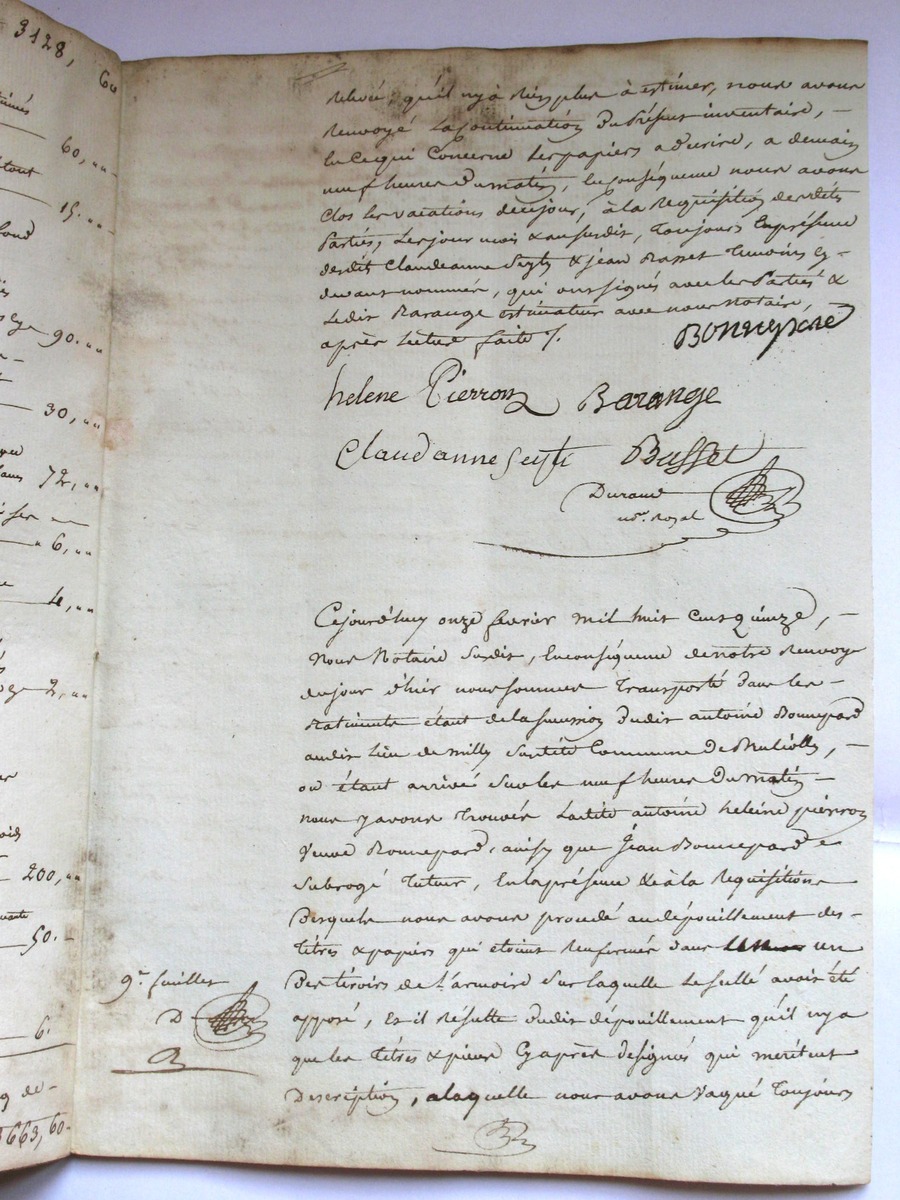 3128, 60
60, ""
15. ""
90. ""
30, ""
72, ""
6, ""
4, ""
2, ""
200, ""
50.
6.
663, 60
qu'il n'y a Rien plus à estimer, nous avons
Renvoyé La Continuation Du Présent inventaire, –
En Ce qui Concerne Les papiers a décrire, a demain
neuf heures Du matin, En Conséquence nous avons
Clos les vacations de ce jour, à la Requisition desdits
Parties, Les jour mois & an susdit, Toujours En présence
desdits Claudeanne & jean Temoins Cy –
devant nommés, qui ont signés avec les Parties &
Ledit Barange estimateur avec nous Notaire,
après Lecture faite /.
Bonnepare
helene Pierron Barange
Claudanne Busset
Durand
not. Royal
Cejourd'huy onze fevrier mil huit Cent Quinze, –
Nous Notaire Susdit, En conséquence de notre Renvoye
du jour d'hier nous sommes Transporté dans les –
Batiments étant de la succession dudit antoine Bonnepard
audit Lieu de milly Susdite Commune De –
où étant arrivé sur les neuf heures Du matin –
nous y avons Trouvée Ladite antoine heleine pierron
Veuve Bonnepard, ainsy que Jean Bonnepard
Subrogé Tuteur, En la présence & à la Requisition
Desquels nous avons procedé au dépouillement des –
Titres & papiers qui etoient Renfermés dans un
Des tiroirs de L'armoire Sur laquelle Le scellé avoit été
apposé, Et il Résulte dudit dépouillement qu'il n'y a
que les titres & pieces Cy après designés qui meritent
Description, a laquelle nous avons Vaqué Toujours
9e. feuillet
D